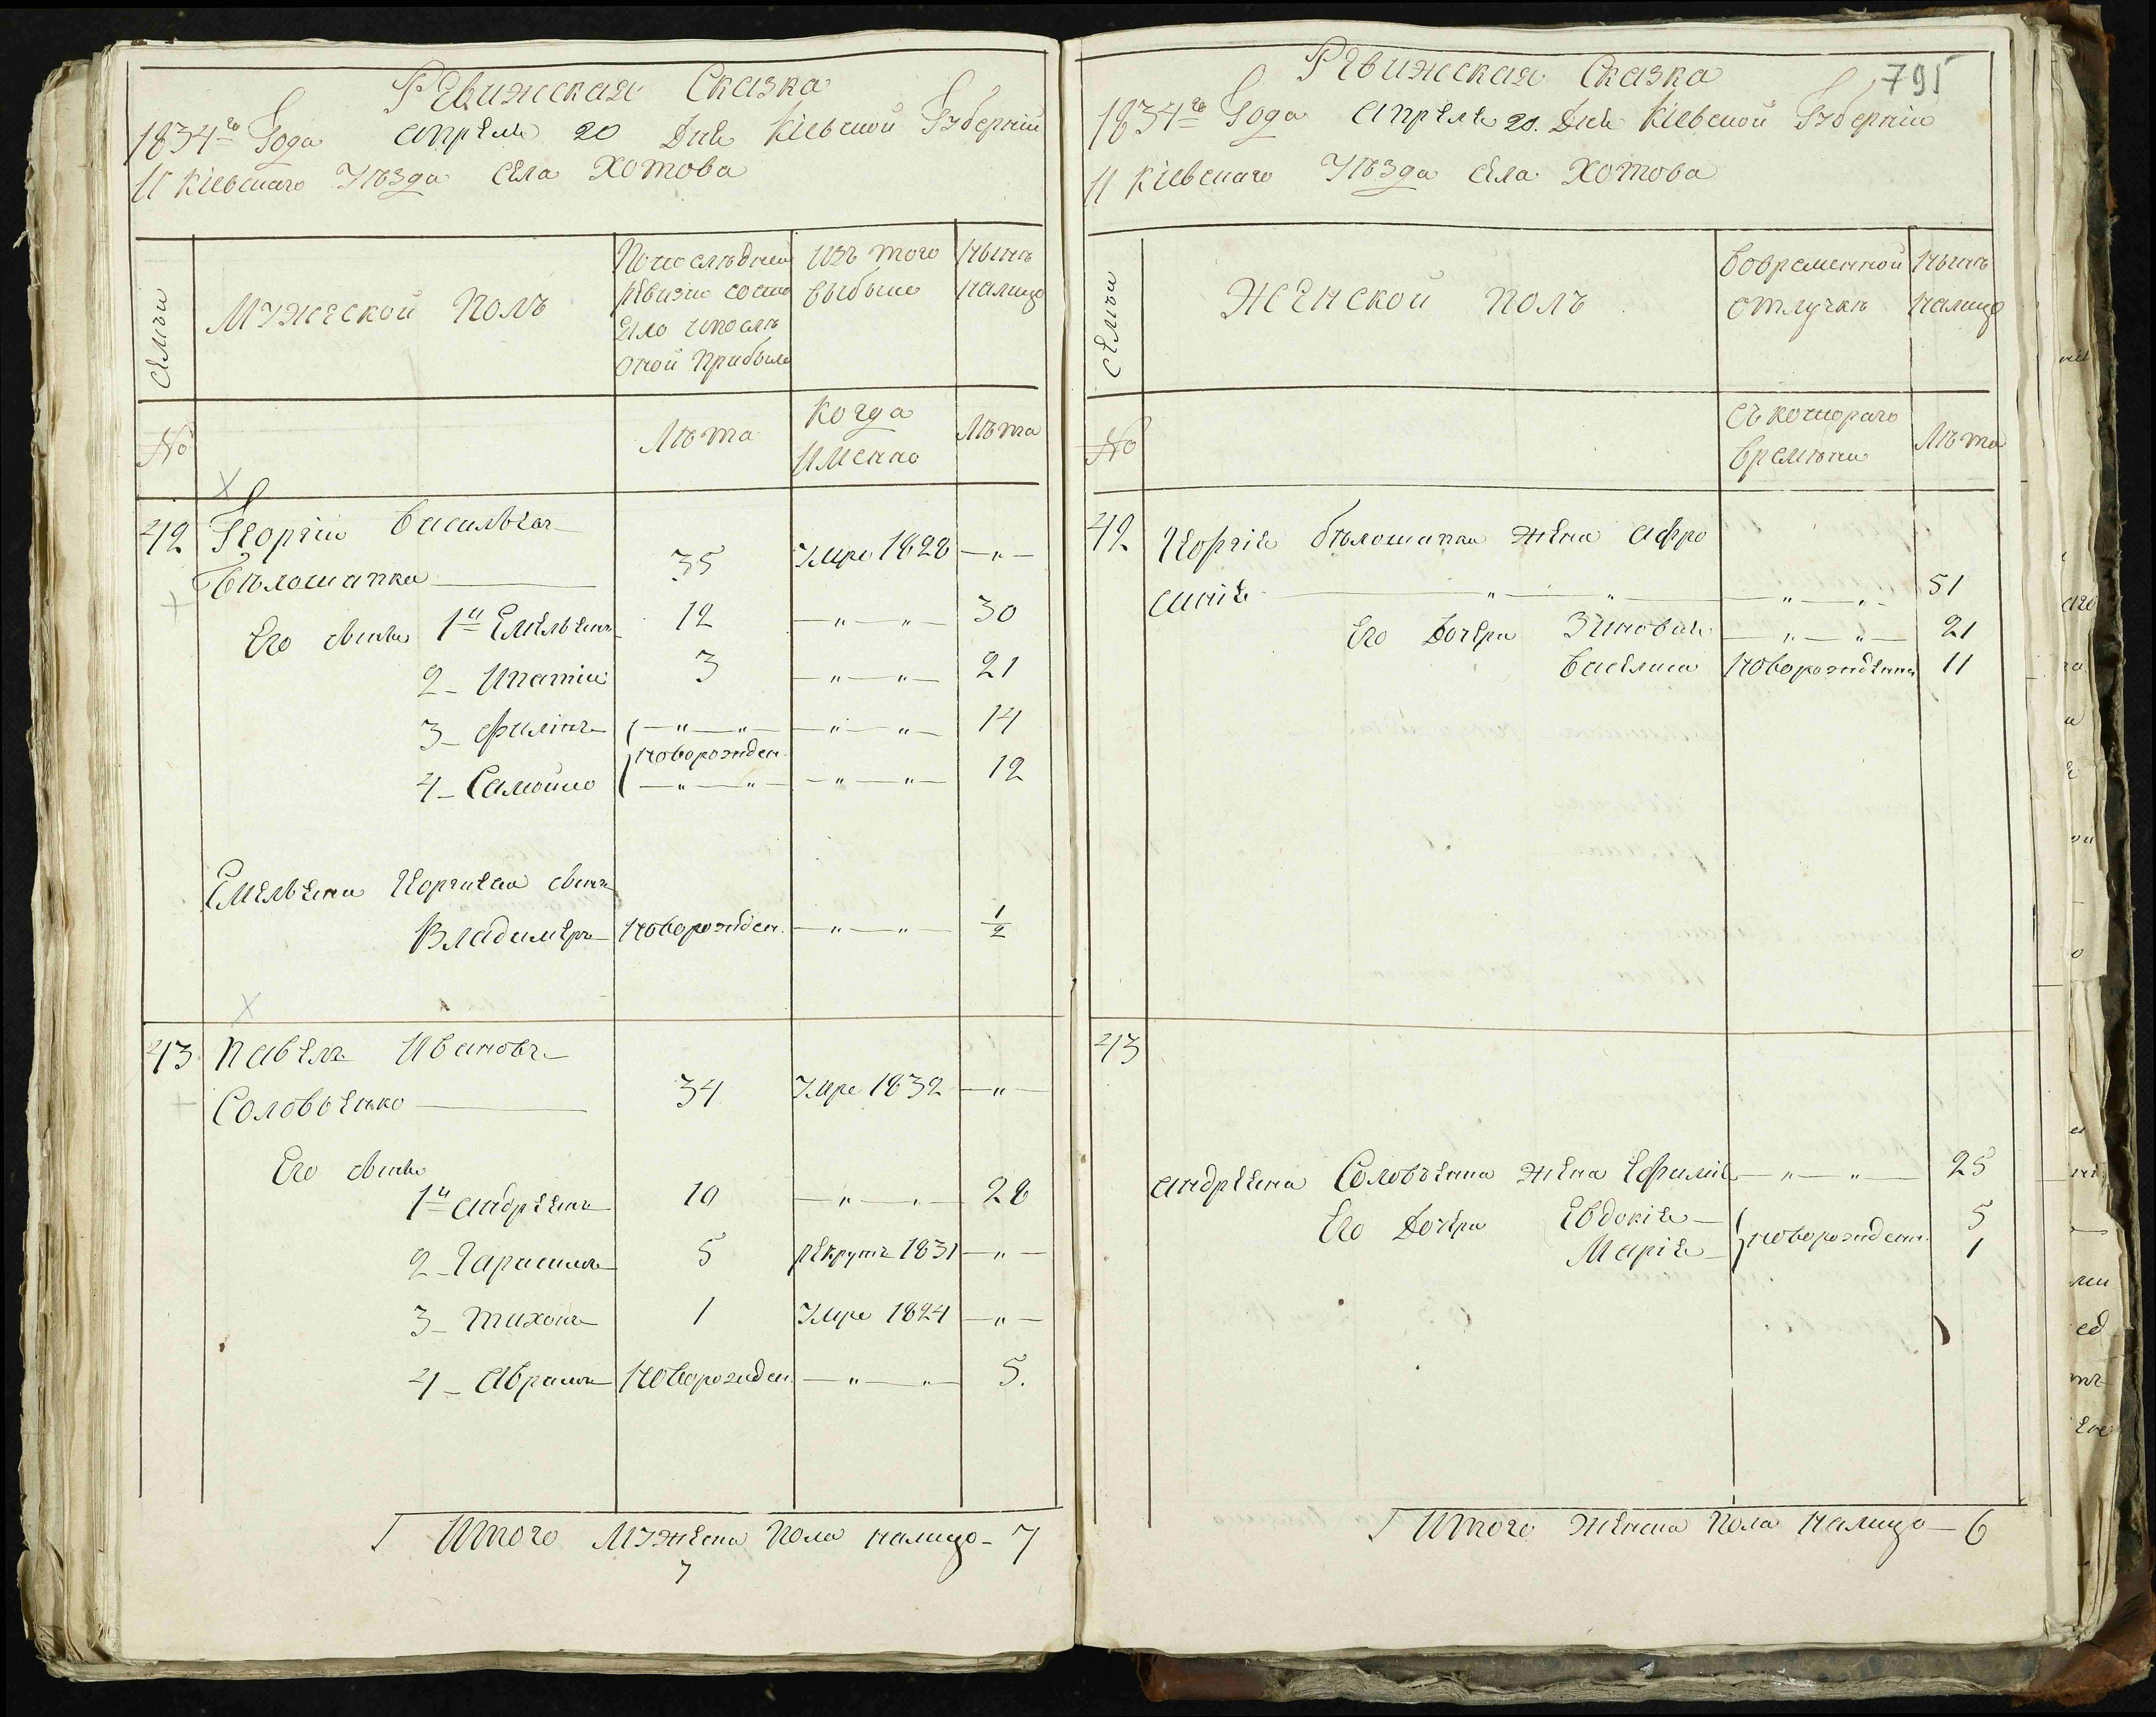 Ревижская Сказка
1834го Года Апреля 20 Дня Кіевской Губерніи
И Кіевскаго Уѣзда села Хотова
семьи
Мужеской Полъ
По последней ревизіи состояло и после оной прибыло
Изъ того выбыло
Нынѣ налицо
№
Лѣта
Когда имѣнно
Лѣта
42 Георгіи Васильевъ
Бѣлошапка 35 Умре 1828 — „ —
Его сынъя 1й Емельянъ 12 — „ — „ — 30
2 — Ипатіи 3 — „ — „ — 21
3 — Филипъ — „ — „ — „ — „ — 14
новорожден.
4 — Самойло — „ — „ — „ — „ — 12
Емельяна Георгиева сынъ
Владимеръ новорожден. — „ — „ — 1/2
43 Павелъ Ивановъ
Соловьенко 34 Умре 1832 — „ —
Его сынъя
1й Андреянъ 10 — „ — „ — 28
2 — Гарасимъ 5 рекрутъ 1831 — „ —
3 — Тихонъ 1 Умре 1824 — „ —
4 — Абрамъ новорожден. — „ — „ — 5.
Итого Мужеска Пола налицо — 7
7
795
Ревижская Сказка
1834го Года Апреля 20. Дня Кіевской Губерніи
И Кіевскаго Уѣзда села Хотова
семьи
Женской полъ
Вовременной отлучкѣ
Нынѣ налицо
№
Съ котораго времѣни
Лѣта
42 Георгія бѣлошапки жена Афро
синія — „ — „ — „ — „ — 51
Его Дочери Зиновія — „ — „ — 21
Василиса новорожденна 11
43
Андреяна Соловьенка жена Ефимія — „ — „ — 25
Его Дочери Евдокія — 5
новорожден.
Марія — 1
Итого женска Пола налицо — 6